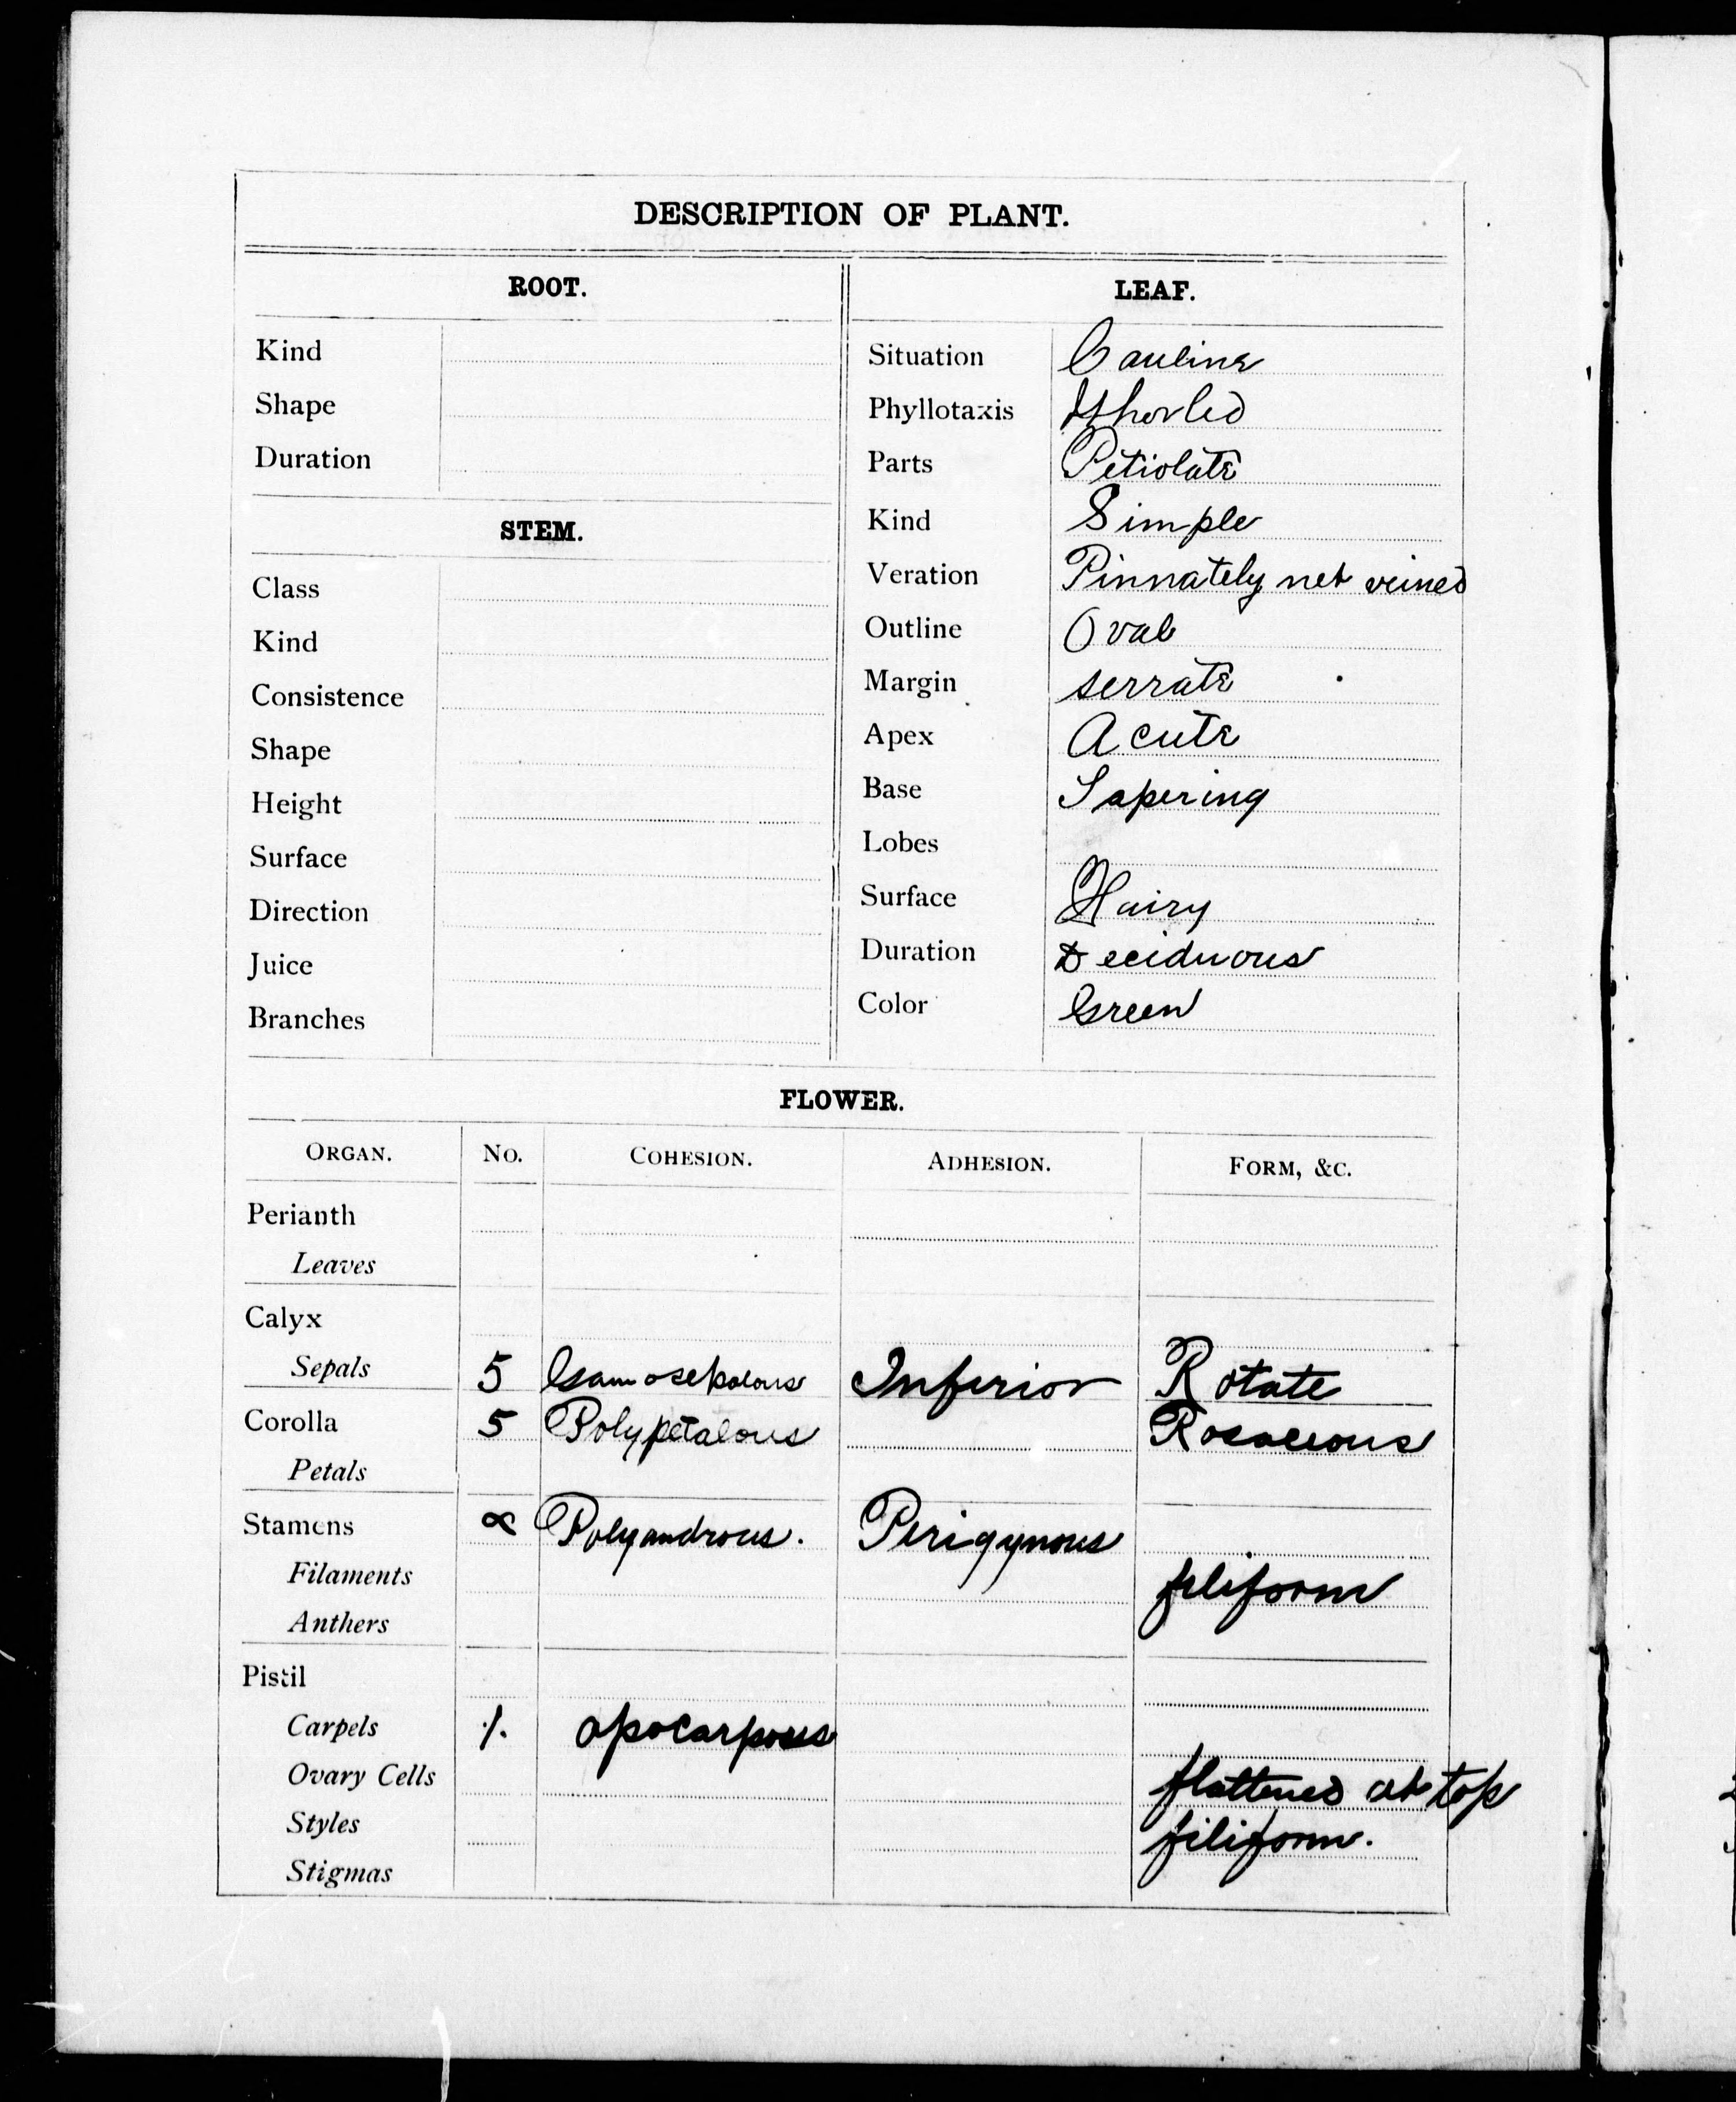 DESCRIPTION OF PLANT.
ROOT.
Kind
Shape
Duration
STEM.
Class
Kind
Consistence
Shape
Height
Surface
Direction
Juice
Branches
LEAF.
Situation Cauline
Phyllotaxis Whorled
Parts Petiolate
Kind Simple
Veration Pinnately net veined
Outline Oval
Margin serrate
Apex Acute
Base Tapering
Lobes
Surface Hairy
Duration Deciduous
Color Green
FLOWER.
ORGAN. No. COHESION. ADHESION. FORM, &C.
Perianth
Leaves
Calyx
Sepals 5 Gamosepalous Inferior Rotate
Corolla 5 Polypetalous Rosaceous
Petals
Stamens ∝ Polyandrous. Perigynous
Filaments filiform
Anthers
Pistil
Carpels 1. apocarpous
Ovary Cells flattened at top
Styles filiform.
Stigmas